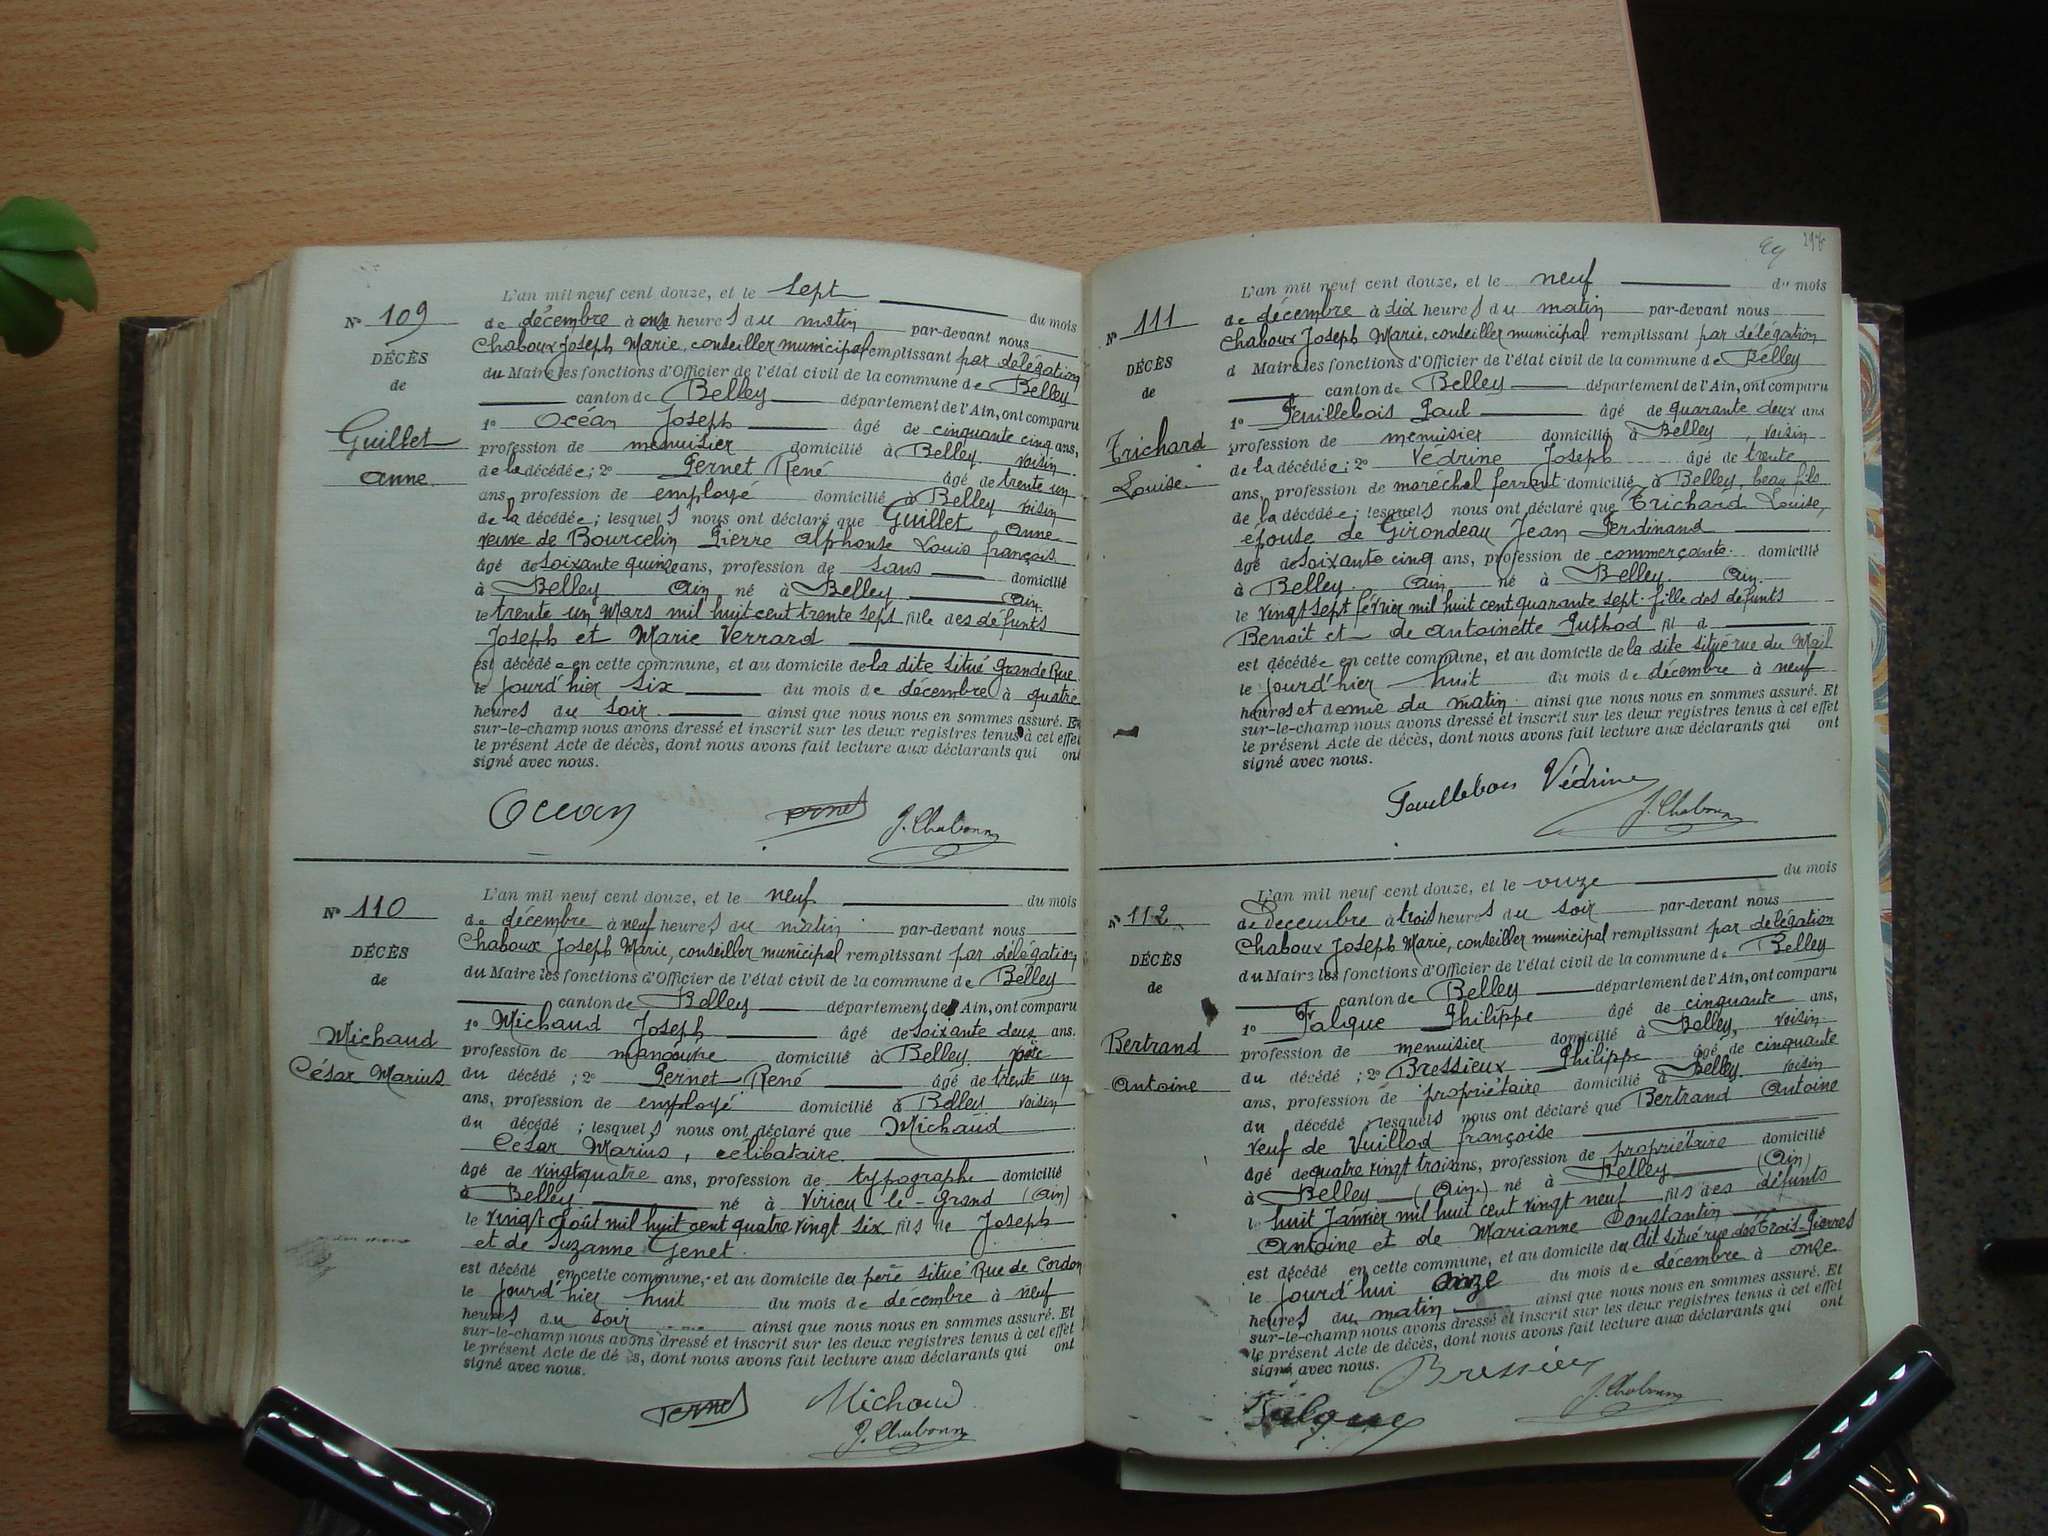 N° 109
DÉCÈS
de
Guillet
Anne
L'an mil neuf cent douze, et le sept du mois
de décembre à onze heures du matin par-devant nous
Chaboux Joseph Marie, conseiller municipal remplissant par délégation
du Maire les fonctions d'Officier de l'état civil de la commune de Belley
canton de Belley département de l'Ain, ont comparu
1° Océan Joseph âgé de cinquante cinq ans,
profession de menuisier domicilié à Belley voisin
de la décédée; 2° Pernet René âgé de trente un
ans, profession de employé domicilié à Belley voisin
de la décédée; lesquels nous ont déclaré que Guillet Anne
veuve de Bourcelin Pierre Alphonse Louis François
âgé de soixante quinze ans, profession de sans domicilié
à Belley Ain né à Belley Ain.
le trente un Mars mil huit cent trente sept fille des défunts
Joseph et Marie Verrard
est décédée en cette commune, et au domicile de la dite situé Grande Rue
le jourd'hier six du mois de décembre à quatre
heures du soir ainsi que nous nous en sommes assuré. Et
sur-le-champ nous avons dressé et inscrit sur les deux registres tenus à cet effet
le présent Acte de décès, dont nous avons fait lecture aux déclarants qui ont
signé avec nous.
Océan Pernet J. Chaboux
N° 110
DÉCÈS
de
Michaud
César Marius
L'an mil neuf cent douze, et le neuf du mois
de décembre à neuf heures du matin par-devant nous
Chaboux Joseph Marie, conseiller municipal remplissant par délégation
du Maire les fonctions d'Officier de l'état civil de la commune de Belley
canton de Belley département de l'Ain, ont comparu
1° Michaud Joseph âgé de soixante deux ans.
profession de manœuvre domicilié à Belley père
du décédé ; 2° Pernet René âgé de trente un
ans, profession de employé domicilié à Belley voisin
du décédé ; lesquels nous ont déclaré que Michaud
César Marius, célibataire
âgé de vingt quatre ans, profession de typographe domicilié
à Belley né à Virieu le Grand (Ain)
le vingt Août mil huit cent quatre vingt six fils de Joseph
et de Suzanne Genet
est décédé en cette commune, et au domicile du père situé Rue de Cordon
le jourd'hier huit du mois de décembre à neuf
heures du soir ainsi que nous nous en sommes assuré. Et
sur-le-champ nous avons dressé et inscrit sur les deux registres tenus à cet effet
le présent Acte de décès, dont nous avons fait lecture aux déclarants qui ont
signé avec nous.
Pernet Michaud
J. Chaboux
N° 111
DÉCÈS
de
Trichard
Louise
L'an mil neuf cent douze, et le neuf du mois
de décembre à dix heures du matin par-devant nous
Chaboux Joseph Marie, conseiller municipal remplissant par délégation
d Maire les fonctions d'Officier de l'état civil de la commune de Belley
canton de Belley département de l'Ain, ont comparu
1° Feuillebois Paul âgé de quarante deux ans
profession de menuisier domicilié à Belley, voisin
de la décédée; 2° Védrine Joseph âgé de trente
ans, profession de maréchal ferrant domicilié à Belley, beau fils
de la décédée; lesquels nous ont déclaré que Trichard Louise,
épouse de Girondeau Jean Ferdinand
âgé de soixante cinq ans, profession de commerçante domicilié
à Belley Ain né à Belley. Ain.
le vingt sept février mil huit cent quarante sept fille des défunts
Benoit et de Antoinette Puthod fil d
est décédée en cette commune, et au domicile de la dite situé rue du Mail
le jourd'hier huit du mois de décembre à neuf
heures et demie du matin ainsi que nous nous en sommes assuré. Et
sur-le-champ nous avons dressé et inscrit sur les deux registres tenus à cet effet
le présent Acte de décès, dont nous avons fait lecture aux déclarants qui ont
signé avec nous.
Feuillebois Védrine
J. Chaboux
N° 112
DÉCÈS
de
Bertrand
Antoine
L'an mil neuf cent douze, et le onze du mois
de Décembre à trois heures du soir par-devant nous
Chaboux Joseph Marie, conseiller municipal remplissant par délégation
du Maire les fonctions d'Officier de l'état civil de la commune de Belley
canton de Belley département de l'Ain, ont comparu
1° Falque Philippe âgé de cinquante ans,
profession de menuisier domicilié à Belley, voisin
du décédé ; 2° Bressieux Philippe âgé de cinquante
ans, profession de propriétaire domicilié à Belley. voisin
du décédé lesquels nous ont déclaré que Bertrand Antoine
veuf de Vuillod françoise
âgé de quatre vingt trois ans, profession de propriétaire domicilié
à Belley (Ain.) né à Belley (Ain)
le huit Janvier mil huit cent vingt neuf fils des défunts
Antoine et de Marianne Constantin
est décédé en cette commune, et au domicile du dit situé rue des Trois-Pierres
le jourd'hui onze du mois de décembre à onze
heures du matin ainsi que nous nous en sommes assuré. Et
sur-le-champ nous avons dressé et inscrit sur les deux registres tenus à cet effet
le présent Acte de décès, dont nous avons fait lecture aux déclarants qui ont
signé avec nous. Bressieux
Falque J. Chaboux